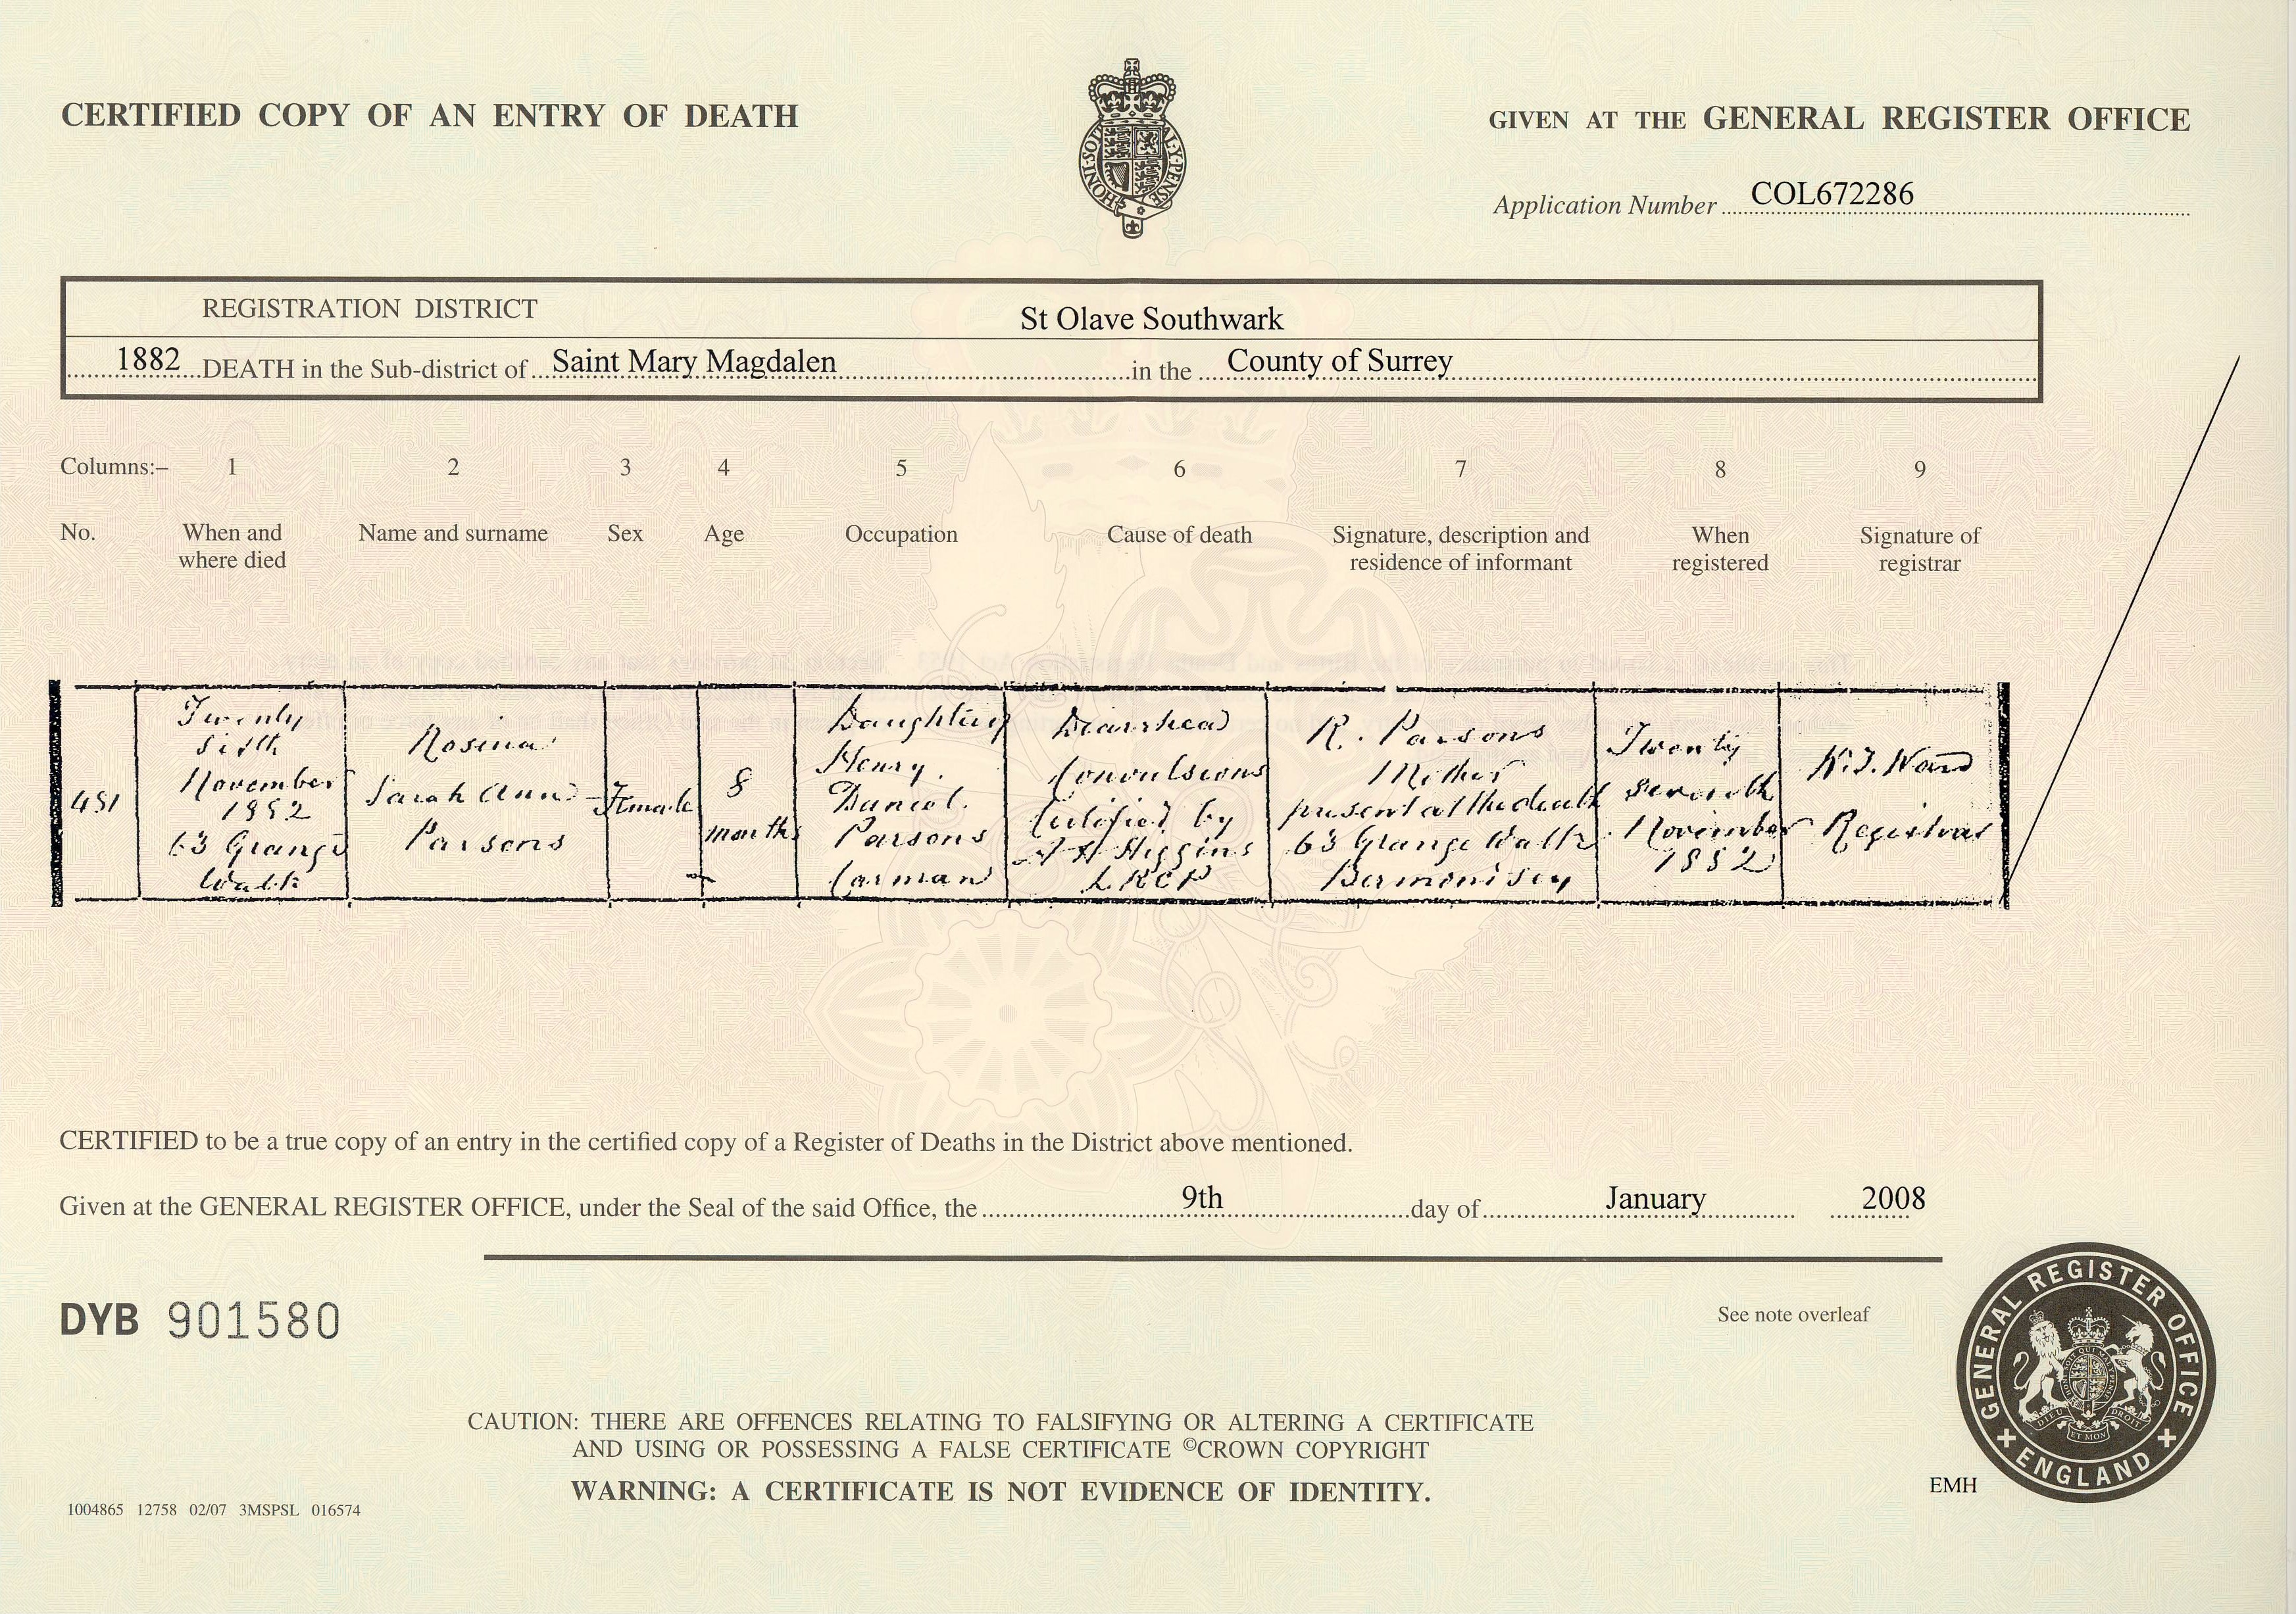 CERTIFIED COPY OF AN ENTRY OF DEATH
HONI·SOIT
Y·PENSE
GIVEN AT THE GENERAL REGISTER OFFICE
Application Number COL672286
REGISTRATION DISTRICT St Olave Southwark
1882 DEATH in the Sub-district of Saint Mary Magdalen in the County of Surrey
Columns:– 1 2 3 4 5 6 7 8 9
No.
When and
where died
Name and surname
Sex
Age
Occupation
Cause of death
Signature, description and
residence of informant
When
registered
Signature of
registrar
451
Twenty
sixth
November
1882
63 Grange
Walk
Rosina
Sarah Ann
Parsons
Female
8
months
Daughter of
Henry
Daniel
Parsons
Carman
Diarrhea
Convulsions
Certified by
Higgins
LRCP
R. Parsons
Mother
present at the death
63 Grange Walk
Bermondsey
Twenty
seventh
November
1882
Ward
Registrar
CERTIFIED to be a true copy of an entry in the certified copy of a Register of Deaths in the District above mentioned.
Given at the GENERAL REGISTER OFFICE, under the Seal of the said Office, the 9th day of January 2008
DYB 901580
See note overleaf
GENERAL REGISTER OFFICE
ENGLAND
DIEU ET MON DROIT
CAUTION: THERE ARE OFFENCES RELATING TO FALSIFYING OR ALTERING A CERTIFICATE
AND USING OR POSSESSING A FALSE CERTIFICATE ©CROWN COPYRIGHT
WARNING: A CERTIFICATE IS NOT EVIDENCE OF IDENTITY.
EMH
1004865 12758 02/07 3MSPSL 016574